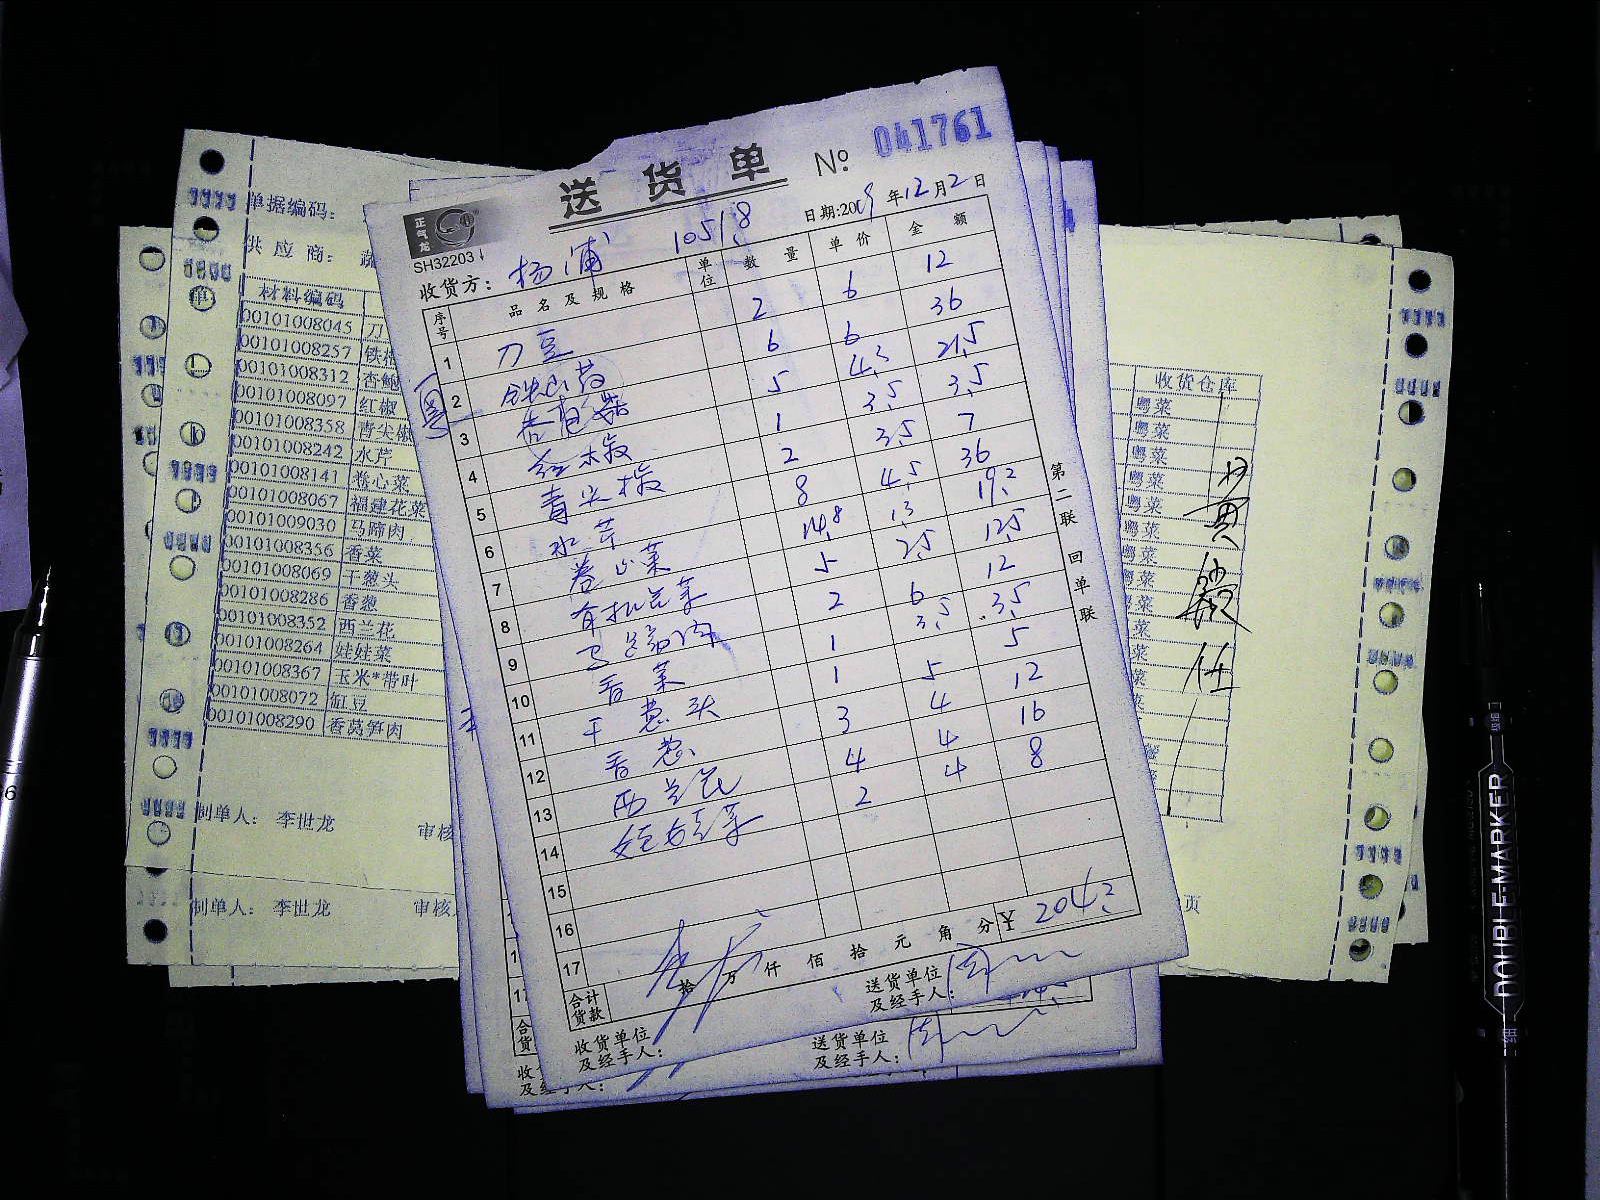 送货单 № 041761
正气龙
SH32203
收货方: 杨浦 1051.8 日期:2009年12月2日
序号 品名及规格 单位 数量 单价 金额
1 刀豆 2 6 12
2 铁山药 6 6 36
3 杏鲍菇 5 4.3 21.5
4 红椒 1 3.5 3.5
5 青尖椒 2 3.5 7
6 水芹 8 4.5 36
7 卷心菜 14.8 1.3 19.2
8 有机花菜 5 2.5 12.5
9 马蹄肉 2 6 12
10 香菜 1 3.5 3.5
11 干葱头 1 5 5
12 香葱 3 4 12
13 西兰花 4 4 16
14 娃娃菜 2 4 8
15
16
17
合计货款 拾万仟佰拾元角分 ¥ 204.2
收货单位及经手人: 送货单位及经手人:
第二联 回单联
粤
单据编码:
供应商: 蔬
材料编码
00101008045 刀
00101008257 铁棍
00101008312 杏鲍
00101008097 红椒
00101008358 青尖椒
00101008242 水芹
00101008141 卷心菜
00101008067 福建花菜
00101009030 马蹄肉
00101008356 香菜
00101008069 干葱头
00101008286 香葱
00101008352 西兰花
00101008264 娃娃菜
00101008367 玉米*带叶
00101008072 缸豆
00101008290 香莴笋肉
制单人: 李世龙 审核
制单人: 李世龙 审核
收货仓库
粤菜
粤菜
粤菜
粤菜
粤菜
粤菜
粤菜
粤菜
页
送货单位及经手人:
DOUBLE-MARKER